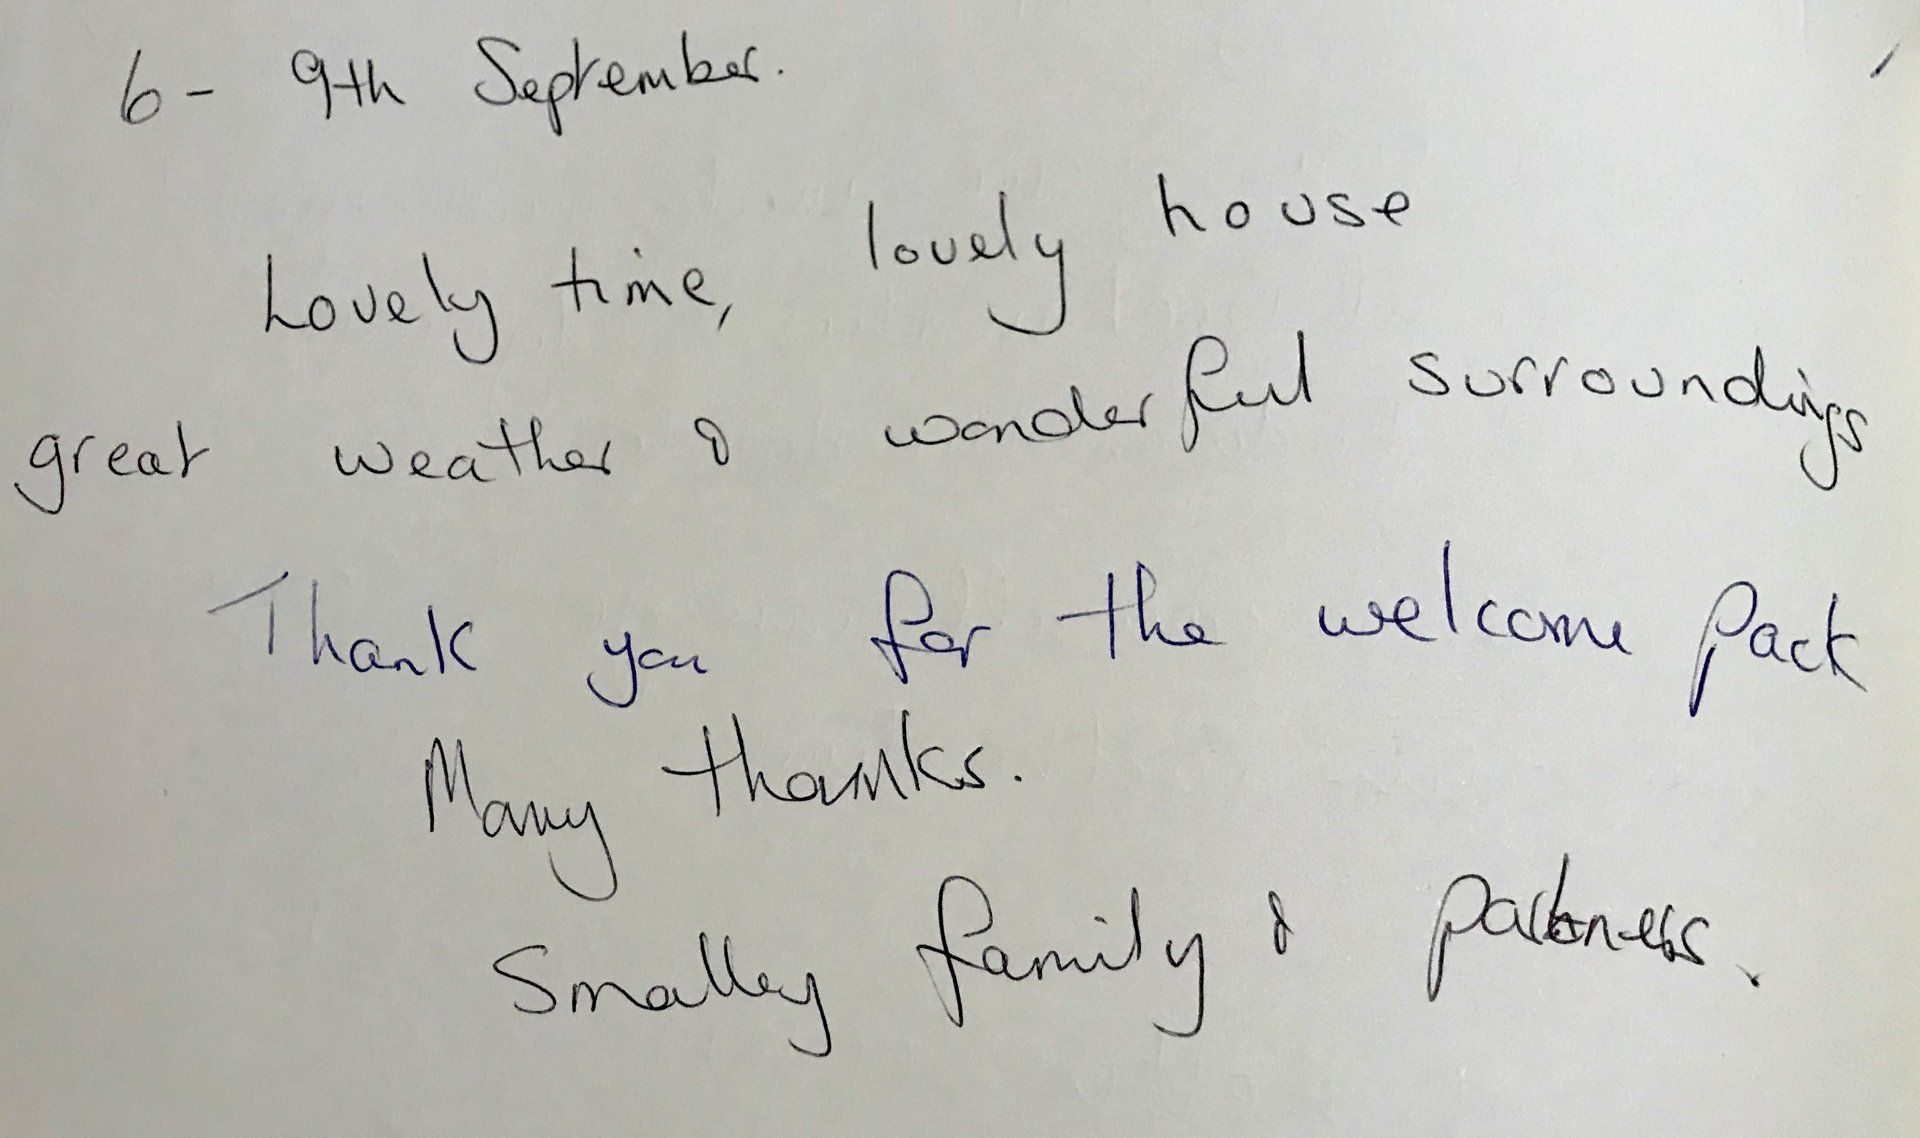 6- 9th September.
Lovely time, lovely house
great weather & wonderful surroundings
Thank you for the welcome pack
Many thanks.
Smalley family & partners.